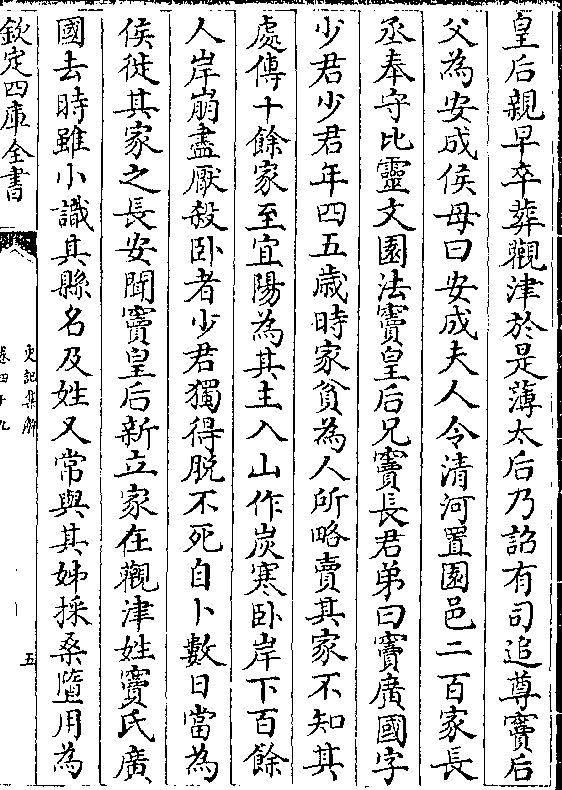 皇后親早卒葬觀津於是薄太后乃詔有司追尊竇后
父為安成侯母曰安成夫人令清河置園邑二百家長
丞奉守比靈文園法竇皇后兄竇長君弟曰竇廣國字
少君少君年四五歲時家貧為人所略賣其家不知其
處傳十餘家至宜陽為其主入山作炭寒卧岸下百餘
人岸崩盡厭殺卧者少君獨得脱不死自卜數日當為
侯從其家之長安聞竇皇后新立家在觀津姓竇氏廣
國去時雖小識其縣名及姓又常與其姊採桑墮用為
欽定四庫全書
史記集解
卷四十九
五